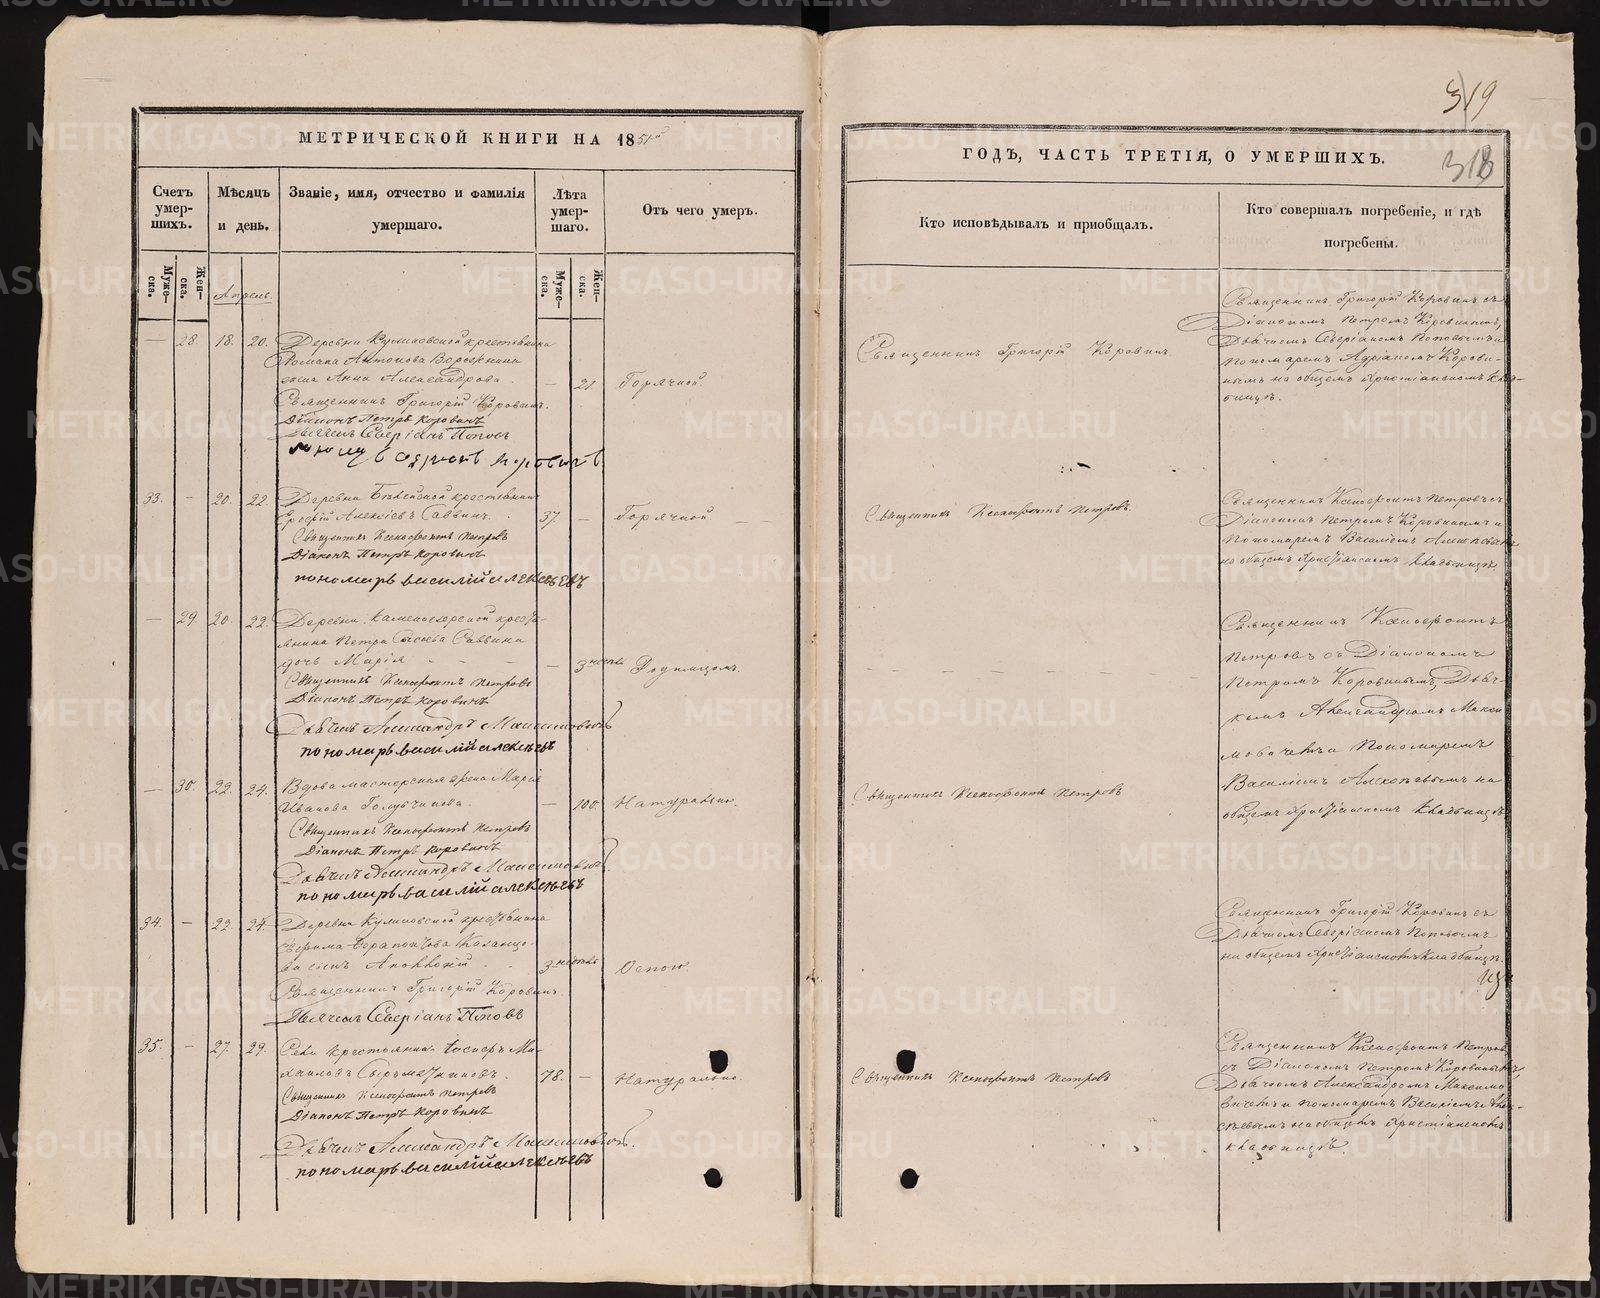 319
318
МЕТРИЧЕСКОЙ КНИГИ НА 1851й
ГОДЪ, ЧАСТЬ ТРЕТІЯ, О УМЕРШИХЪ.
Счетъ умер-шихъ.
Муже-ска.
Жен-ска.
Мѣсяцъ и день.
Званіе, имя, отчество и фамилія умершаго.
Лѣта умер-шаго.
Муже-ска.
Жен-ска.
Отъ чего умеръ.
Кто исповѣдывалъ и приобщалъ.
Кто совершалъ погребеніе, и гдѣ погребены.
Апрель.
— 28. 18. 20. Деревни Куликовской крестьянина
Антонова
жена Анна Александрова. — 21. Горячкой.
Священникъ Григорій Коровинъ.
Діаконъ Петръ Коровинъ
Дьячекъ Северіанъ Поповъ
Священникъ Григорій Коровинъ
Священникъ Григорій Коровинъ съ
Діакономъ Петромъ Коровинымъ,
Дьячкомъ Северіаномъ Поповымъ и
Пономаремъ Адріаномъ Корови-
нымъ на общемъ Христіанскомъ клад-
бищѣ.
33. — 20. 22. Деревни крестьянинъ
Алексіевъ Саввинъ. 37. — Горячкой.
Священникъ Ксенофонтъ Петровъ
Діаконъ Петръ Коровинъ
пономарь василій алексѣевъ
Священникъ Ксенофонтъ Петровъ.
Священникъ Ксенофонтъ Петровъ съ
Діакономъ Петромъ Коровинымъ и
Пономаремъ Василіемъ Алексѣевымъ
на общемъ Христіанскомъ кладбищѣ
— 29. 20. 22. Деревни кресть-
янина Петра Саввина
дочь Марія — 3 Родимцомъ.
Священникъ Ксенофонтъ Петровъ
Діаконъ Петръ Коровинъ
Дьячекъ Александръ Максимовичъ
пономарь василій алексѣевъ
Священникъ Ксенофонтъ
Петровъ съ Діакономъ
Петромъ Коровинымъ, Дьяч-
комъ Александромъ Макси
мовичемъ и Пономаремъ
Василіемъ Алексѣевымъ на
общемъ Христіанскомъ кладбищѣ
— 30. 22. 24. Вдова мастерская жена Марія
Иванова Голубчикова. — 100. Натурально.
Священникъ Ксенофонтъ Петровъ
Діаконъ Петръ Коровинъ
Дьячекъ Александръ Максимовичъ
пономарь василій алексѣевъ
Священникъ Ксенофонтъ Петровъ
34. — 22. 24. Деревни Куликовской крестьянина
Казанцо-
ва сынъ 3 Оспою.
Священникъ Григорій Коровинъ
Дьячекъ Северіанъ Поповъ
Священникъ Григорій Коровинъ съ
Дьячкомъ Северіаномъ Поповымъ
на общемъ Христіанскомъ кладбищѣ.
35. — 27. 29. Села крестьянинъ Ми-
хаиловъ 78. — Натурально.
Священникъ Ксенофонтъ Петровъ
Діаконъ Петръ Коровинъ
Дьячекъ Александръ Максимовичъ.
пономарь василій алексѣевъ
Священникъ Ксенофонтъ Петровъ
Священникъ Ксенофонтъ Петровъ
съ Діакономъ Петромъ Коровинымъ,
Дьячкомъ Александромъ Максимо
вичемъ и пономаремъ Василіемъ Алек-
сѣевымъ на общемъ Христіанскомъ
кладбищѣ.
METRIKI.GASO-URAL.RU